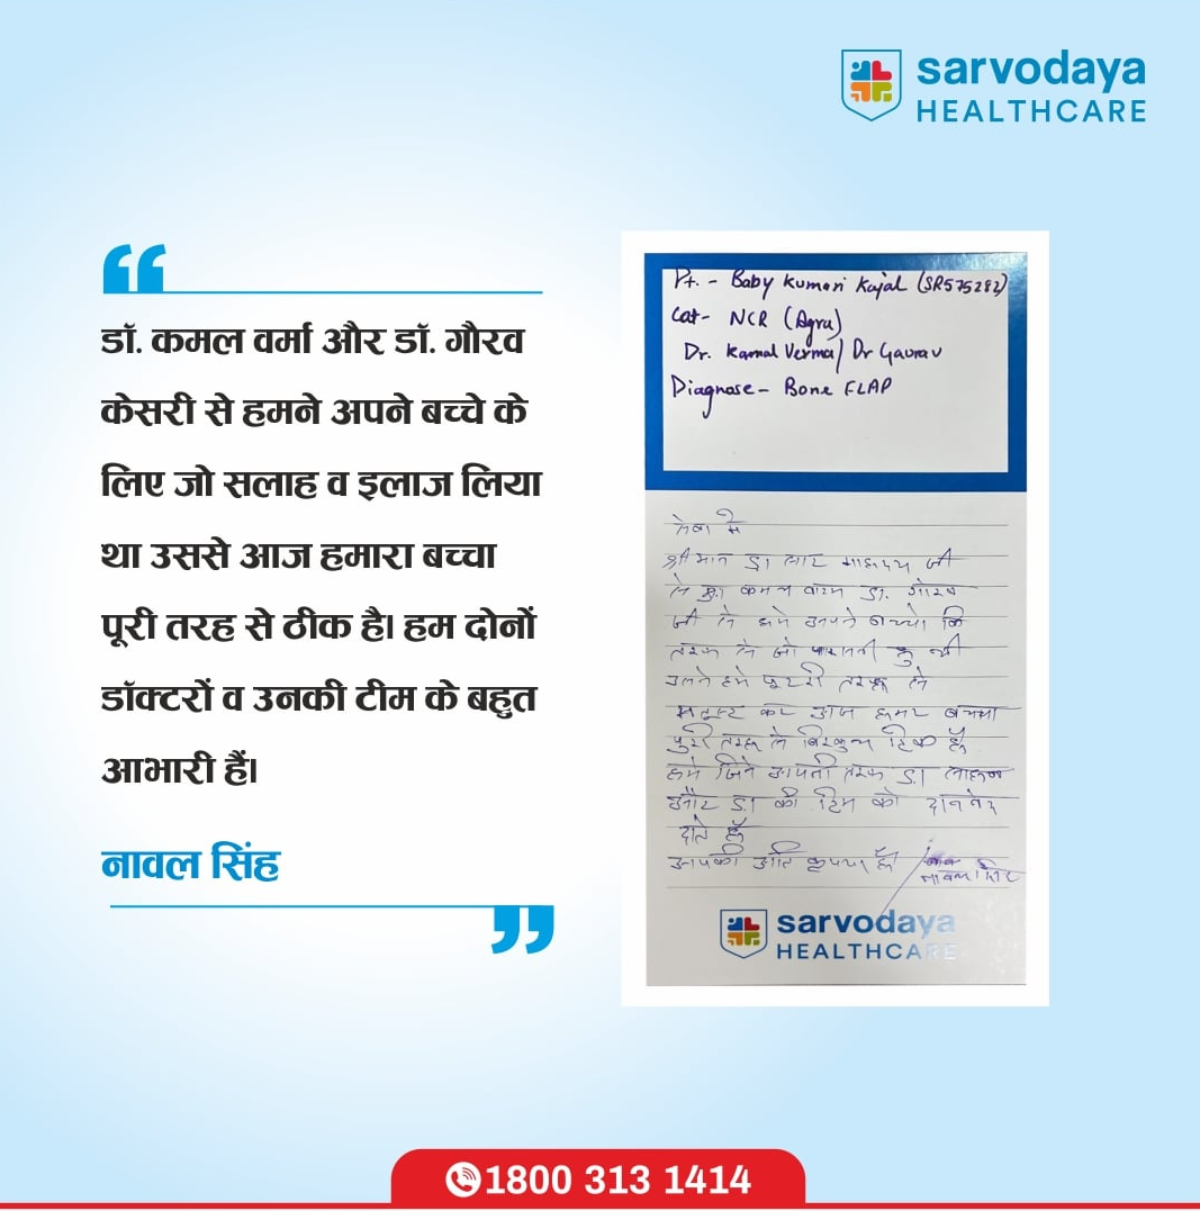 sarvodaya
HEALTHCARE
डॉ. कमल वर्मा और डॉ. गौरव
केसरी से हमने अपने बच्चे के
लिए जो सलाह व इलाज लिया
था उससे आज हमारा बच्चा
पूरी तरह से ठीक है। हम दोनों
डॉक्टरों व उनकी टीम के बहुत
आभारी हैं।
नावल सिंह
Pt. - Baby Kumari Kajal (SR575282)
Cat- NCR (Agra)
Dr. Kamal Verma/ Dr Gaurav
Diagnose - Bone FLAP
सेवा में
श्रीमान डा साहब जी
डा. गोरव
जी ने हमे अपने बच्चो कि
तरफ से जो
हमे पुरी तरह से
कर आज हमर बच्चा
पुरी तरह से बिल्कुल ठिक हैं
आपनी तरफ डा साहब
और डा की टिम को
देते हैं
आपकी अति कृपया हैं
sarvodaya
HEALTHCARE
1800 313 1414